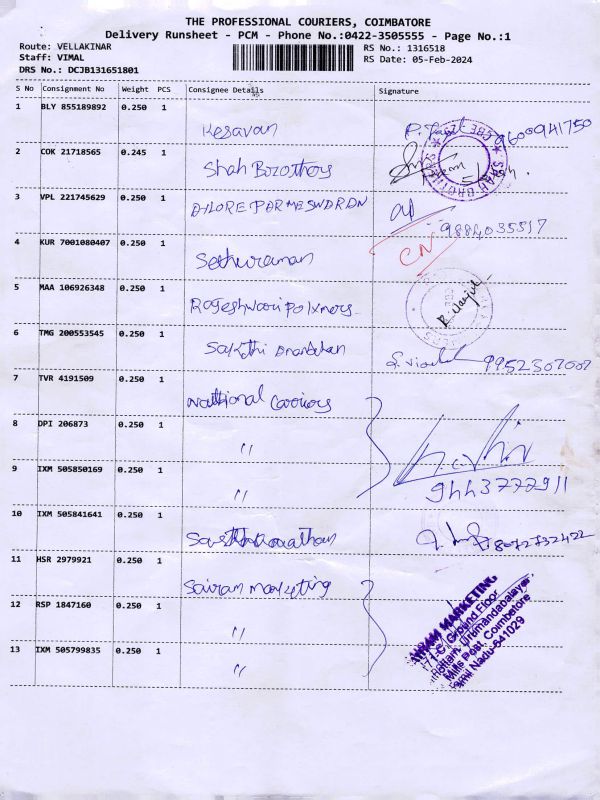 THE PROFESSIONAL COURIERS, COIMBATORE
Delivery Runsheet - PCM - Phone No.:0422-3505555 - Page No.:1
Route: VELLAKINAR
RS No.: 1316518
Staff: VIMAL
RS Date: 05-Feb-2024
DRS No.: DCJB131651801
S No Consignment No Weight PCS Consignee Details Signature
1 BLY 855189892 0.250 1
Kesavan 9600941750
2 COK 21718565 0.245 1
Shah Brothers
3 VPL 221745629 0.250 1
9884035517
4 KUR 7001080407 0.250 1 CN
Sethuraman
5 MAA 106926348 0.250 1
Rajeshwari polymers
6 TMG 200553545 0.250 1
Sakthi 9952307007
7 TVR 4191509 0.250 1
8 DPI 206873 0.250 1
"
9 IXM 505850169 0.250 1
" 9443777911
10 IXM 505841641 0.250 1
11 HSR 2979921 0.250 1
Sairam marketing
12 RSP 1847160 0.250 1
"
13 IXM 505799835 0.250 1
"
MARKETING,
Ground Floor
Mills Post, Coimbatore
Tamil Nadu-641029